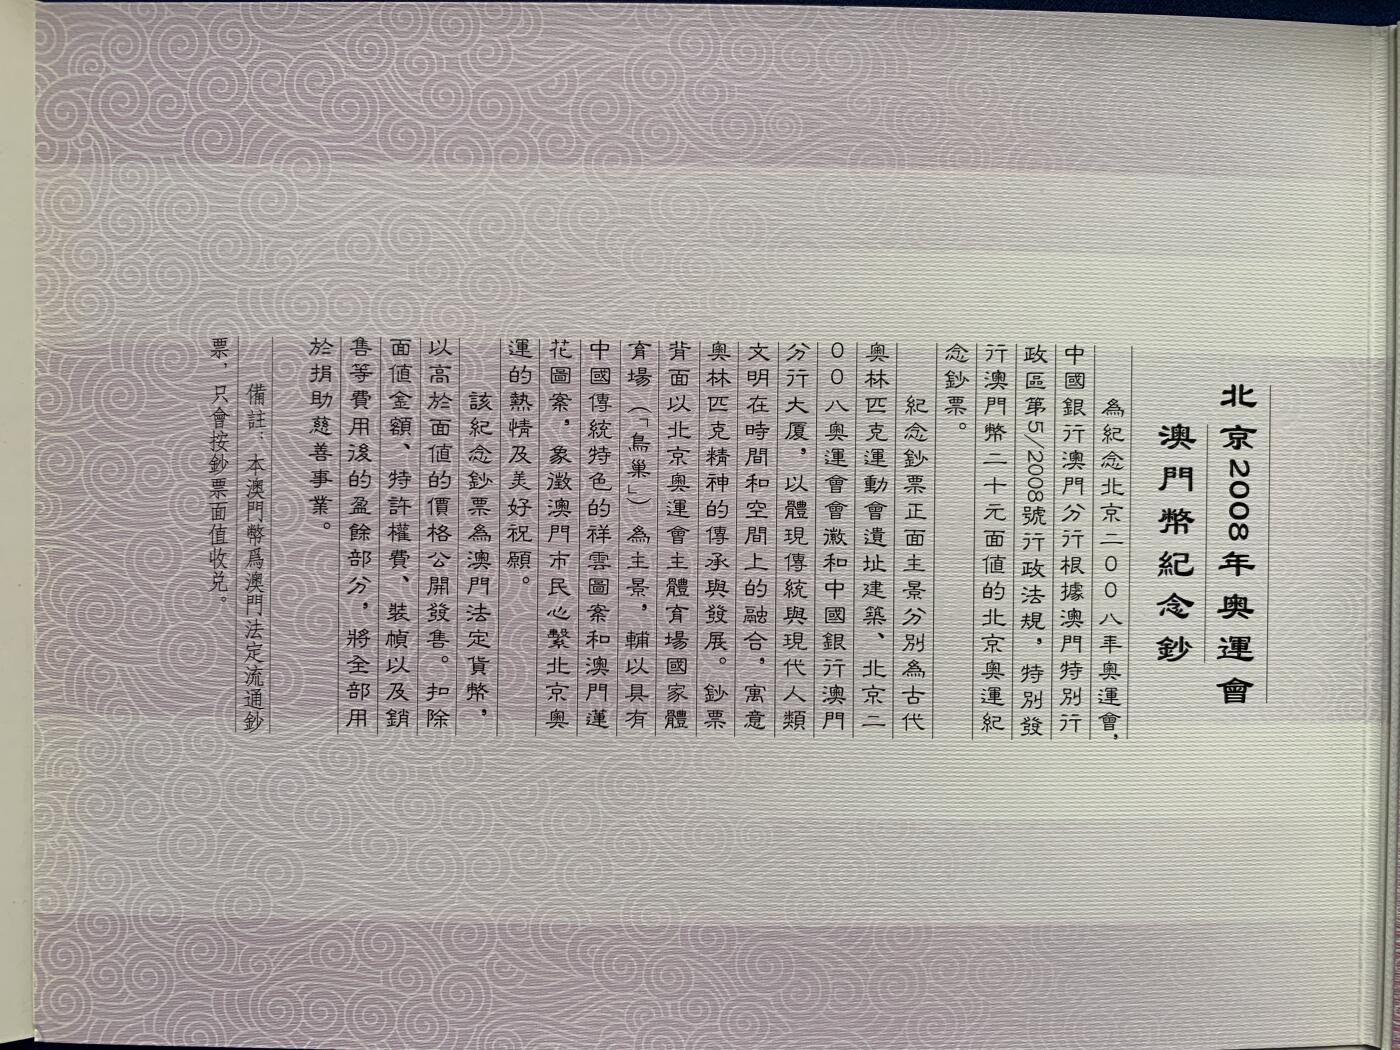 北京2008年奧運會
澳門幣紀念鈔
為紀念北京二００八年奧運會，
中國銀行澳門分行根據澳門特別行
政區第5/2008號行政法規，特別發
行澳門幣二十元面值的北京奧運紀
念鈔票。
紀念鈔票正面主景分別為古代
奧林匹克運動會遺址建築、北京二
００八奧運會會徽和中國銀行澳門
分行大厦，以體現傳統與現代人類
文明在時間和空間上的融合，寓意
奧林匹克精神的傳承與發展。鈔票
背面以北京奧運會主體育場國家體
育場（「鳥巢」）為主景，輔以具有
中國傳統特色的祥雲圖案和澳門蓮
花圖案，象徵澳門市民心繫北京奧
運的熱情及美好祝願。
該紀念鈔票為澳門法定貨幣，
以高於面值的價格公開發售。扣除
面值金額、特許權費、裝幀以及銷
售等費用後的盈餘部分，將全部用
於捐助慈善事業。
備註：本澳門幣爲澳門法定流通鈔
票，只會按鈔票面值收兌。